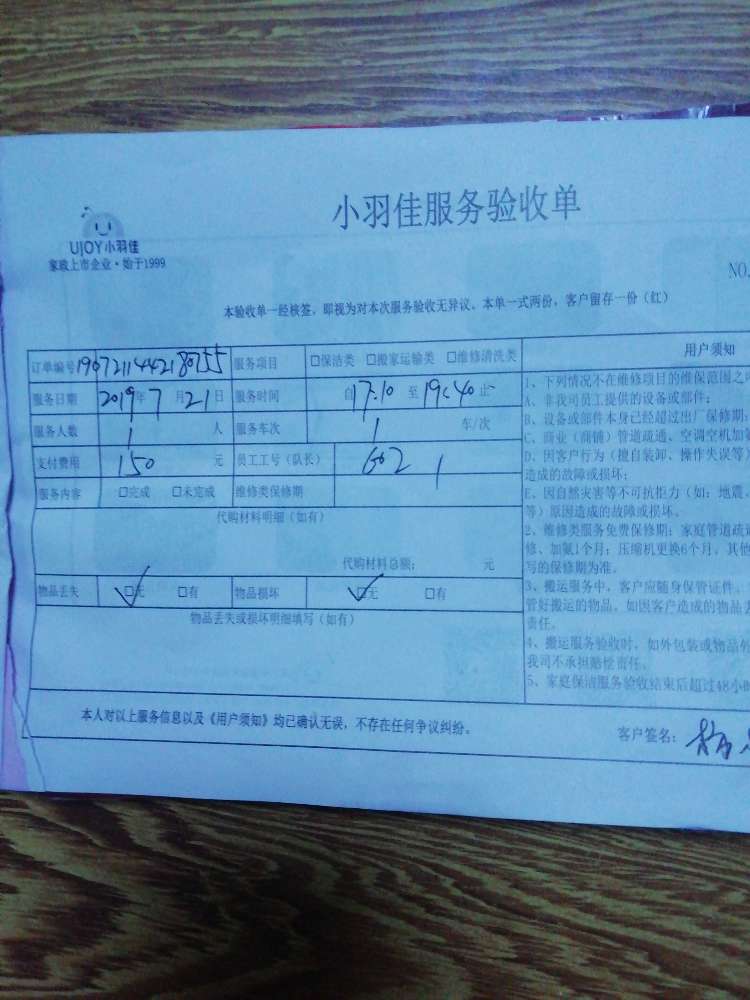 小羽佳服务验收单
UJOY小羽佳
家政上市企业·始于1999
NO.
本验收单一经核签，即视为对本次服务验收无异议。本单一式两份，客户留存一份（红）
订单编号 190721144218 服务项目 □保洁类 □搬家运输类 □维修清洗类
服务日期 2019年7月21日 服务时间 自17:10至19:40止
服务人数 1人 服务车次 1车/次
支付费用 150元 员工工号（队长） 602
服务内容 □完成 □未完成 维修类保修期
代购材料明细（如有）
代购材料总额： 元
物品丢失 ☑无 □有 物品损坏 ☑无 □有
物品丢失或损坏明细填写（如有）
用户须知
1、下列情况不在维修项目的维保范围之
A、非我司员工提供的设备或部件；
B、设备或部件本身已经超过出厂保修期；
C、商业（商铺）管道疏通、空调空机加
D、因客户行为（擅自装卸、操作失误等）
造成的故障或损坏；
E、因自然灾害等不可抗拒力（如：地震、
等）原因造成的故障或损坏。
2、维修类服务免费保修期：家庭管道疏
修、加氟1个月；压缩机更换6个月。其他
写的保修期为准。
3、搬运服务中，客户应随身保管证件、
管好搬运的物品。如因客户造成的物品
责任。
4、搬运服务验收时，如外包装或物品外
我司不承担赔偿责任。
5、家庭保洁服务验收结束后超过48小时
本人对以上服务信息以及《用户须知》均已确认无误，不存在任何争议纠纷。
客户签名：